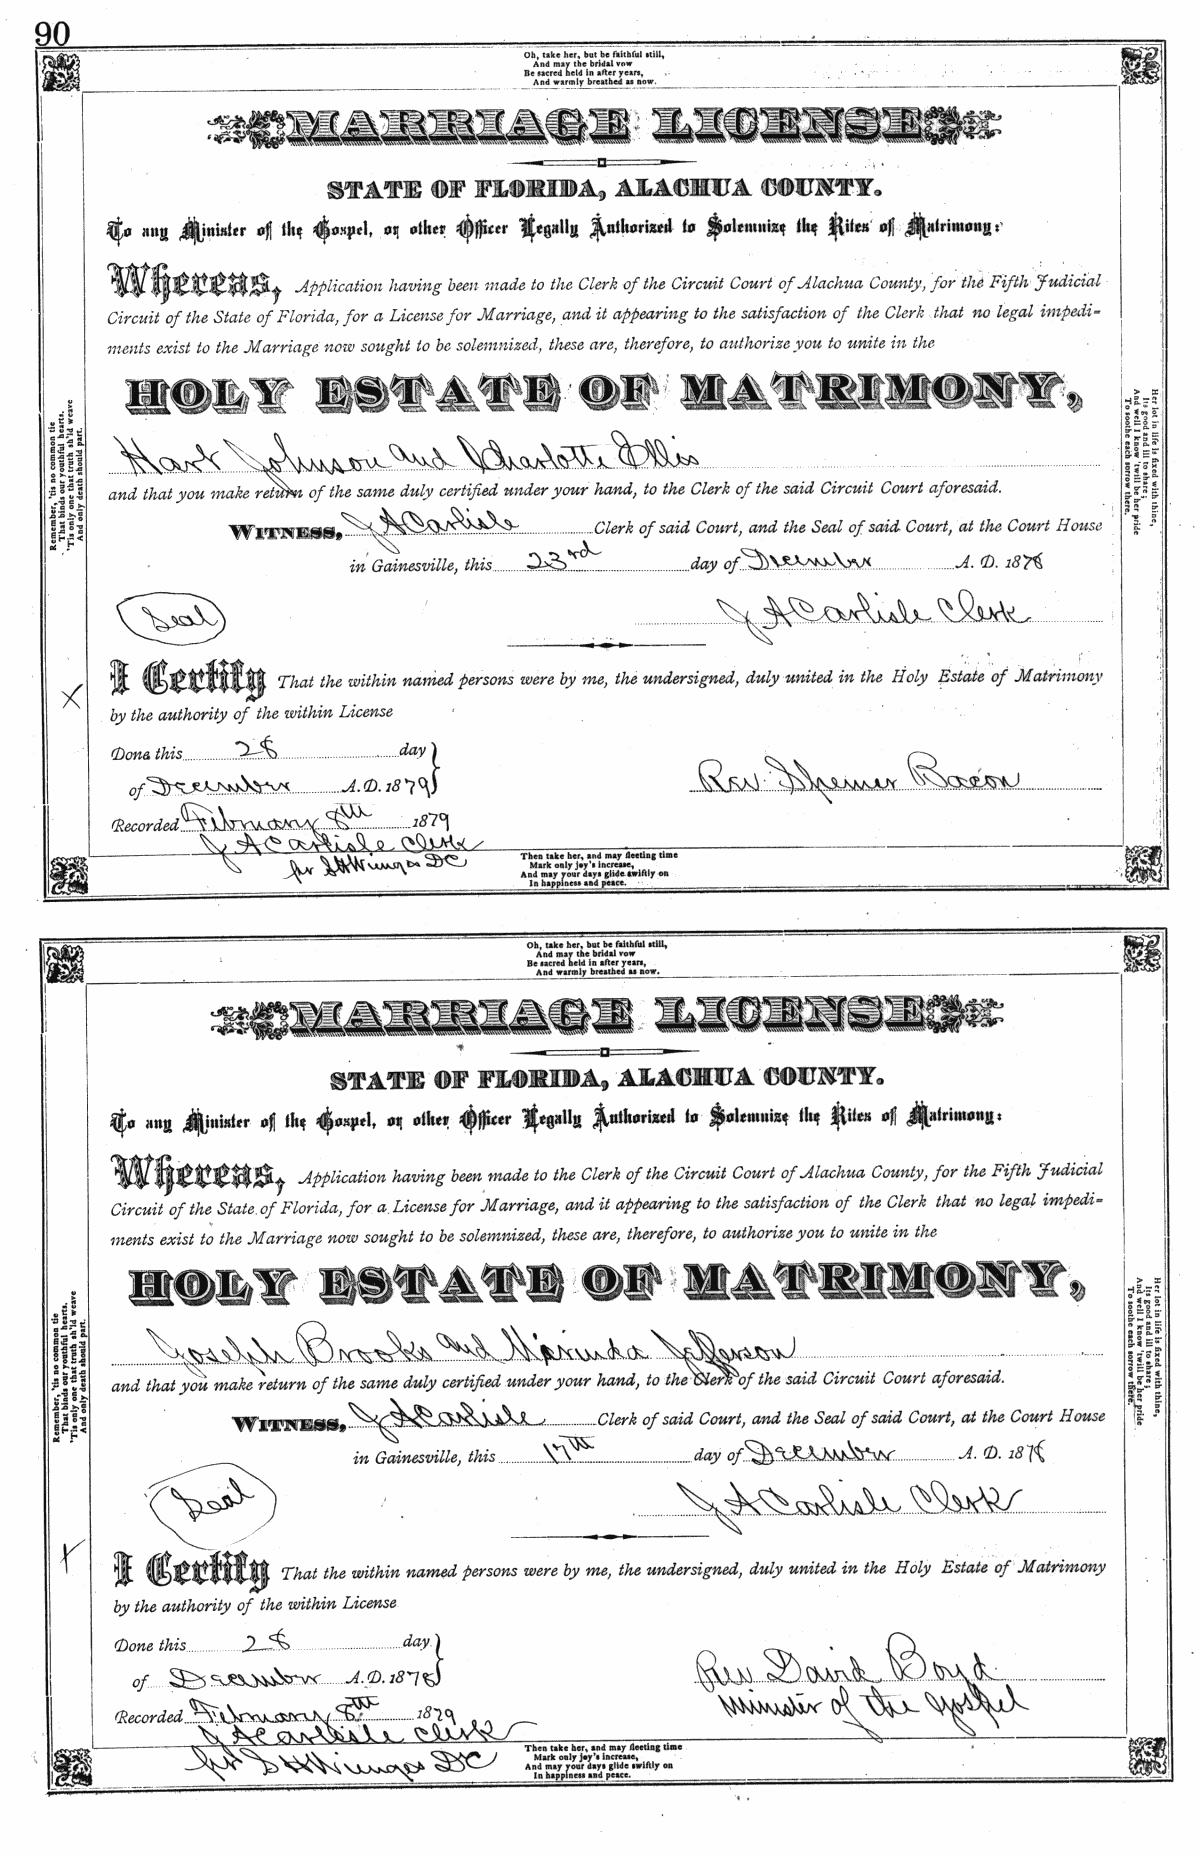 90
Oh, take her, but be faithful still,
And may the bridal vow
Be sacred held in after years,
And warmly breathed as now.
MARRIAGE LICENSE
STATE OF FLORIDA, ALACHUA COUNTY.
To any Minister of the Gospel, or other Officer Legally Authorized to Solemnize the Rites of Matrimony:
Whereas, Application having been made to the Clerk of the Circuit Court of Alachua County, for the Fifth Judicial
Circuit of the State of Florida, for a License for Marriage, and it appearing to the satisfaction of the Clerk that no legal impedi-
ments exist to the Marriage now sought to be solemnized, these are, therefore, to authorize you to unite in the
HOLY ESTATE OF MATRIMONY,
Hart Johnson and Charlotte Ellis
and that you make return of the same duly certified under your hand, to the Clerk of the said Circuit Court aforesaid.
WITNESS, J A Carlisle Clerk of said Court, and the Seal of said Court, at the Court House
in Gainesville, this 23rd day of December A. D. 1878
Seal
J A Carlisle Clerk
I Certify That the within named persons were by me, the undersigned, duly united in the Holy Estate of Matrimony
by the authority of the within License
Done this 28 day
of December A.D. 1879
Rev. Bacon
Recorded February 8th 1879
J A Carlisle Clerk
per S H Wienges DC
Remember, 'tis no common tie
That binds our youthful hearts.
'Tis only one that truth sh'ld weave
And only death should part.
Her lot in life is fixed with thine,
Its good and ill to share;
And well I know 'twill be her pride
To soothe each sorrow there.
Then take her, and may fleeting time
Mark only joy's increase,
And may your days glide swiftly on
In happiness and peace.
Oh, take her, but be faithful still,
And may the bridal vow
Be sacred held in after years,
And warmly breathed as now.
MARRIAGE LICENSE
STATE OF FLORIDA, ALACHUA COUNTY.
To any Minister of the Gospel, or other Officer Legally Authorized to Solemnize the Rites of Matrimony:
Whereas, Application having been made to the Clerk of the Circuit Court of Alachua County, for the Fifth Judicial
Circuit of the State of Florida, for a License for Marriage, and it appearing to the satisfaction of the Clerk that no legal impedi-
ments exist to the Marriage now sought to be solemnized, these are, therefore, to authorize you to unite in the
HOLY ESTATE OF MATRIMONY,
Joseph Brooks and Marinda Jefferson
and that you make return of the same duly certified under your hand, to the Clerk of the said Circuit Court aforesaid.
WITNESS, J A Carlisle Clerk of said Court, and the Seal of said Court, at the Court House
in Gainesville, this 17th day of December A. D. 1878
Seal
J A Carlisle Clerk
I Certify That the within named persons were by me, the undersigned, duly united in the Holy Estate of Matrimony
by the authority of the within License
Done this 28 day
of December A.D. 1878
Rev David Boyd
Minister of the Gospel
Recorded February 8th 1879
J A Carlisle Clerk
per S H Wienges DC
Remember, 'tis no common tie
That binds our youthful hearts.
'Tis only one that truth sh'ld weave
And only death should part.
Her lot in life is fixed with thine,
Its good and ill to share;
And well I know 'twill be her pride
To soothe each sorrow there.
Then take her, and may fleeting time
Mark only joy's increase,
And may your days glide swiftly on
In happiness and peace.